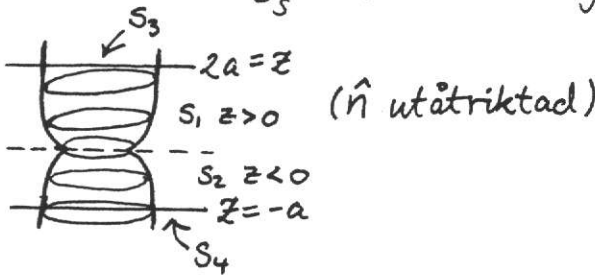 S₃
2a = z
S₁ z>0
(n̂ utåtriktad)
S₂ z<0
z=-a
S₄